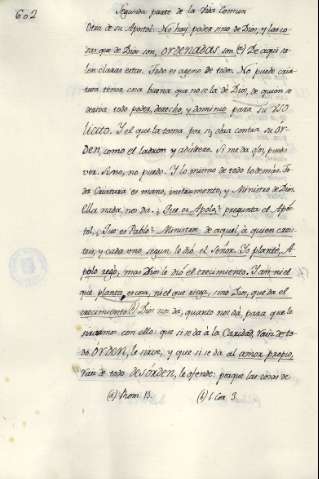 602
Segunda parte de la Vida Comun
Otra de su Apostol: No hay poder sino de Dios, y las co-
sas, que de Dios son, ORDENADAS son (a) De aqui sa-
len claras estas. Todo es ageno de todo. No puede cria-
tura tener cosa buena que no sea de Dios, de quien se
deriva todo poder, derecho, y dominio para su USO
licito. Y el que la toma por si, obra contra su OR-
DEN, como el ladron y adultero. Si me da fin, puedo
usar. Si no, no puedo. Y lo mismo de todo lo demás. To-
da Criatura es mano, instrumento, y Ministro de Dios.
Ella nada no da. ¿Que es Apolo? pregunta el Apos-
tol, ¿Que es Pablo? Ministros de aquel, à quien creis-
teis, y cada uno segun le dió el Señor. Yo planté, A-
polo regó, mas Dios le dió el crecimiento. Y asi, ni el
que planta, es cosa, ni el que riega, sino Dios, que da el
crecimiento (b) Dios nos da, quanto nos dá, para que le
sirvamos con ello: que si se dá à la Caridad, raiz de to-
do ORDEN, le sirve, y que si se da al amor propio,
raiz de todo DESORDEN, le ofende: porque las cosas de
(a) Rom. 13. (b) 1 Cor. 3.